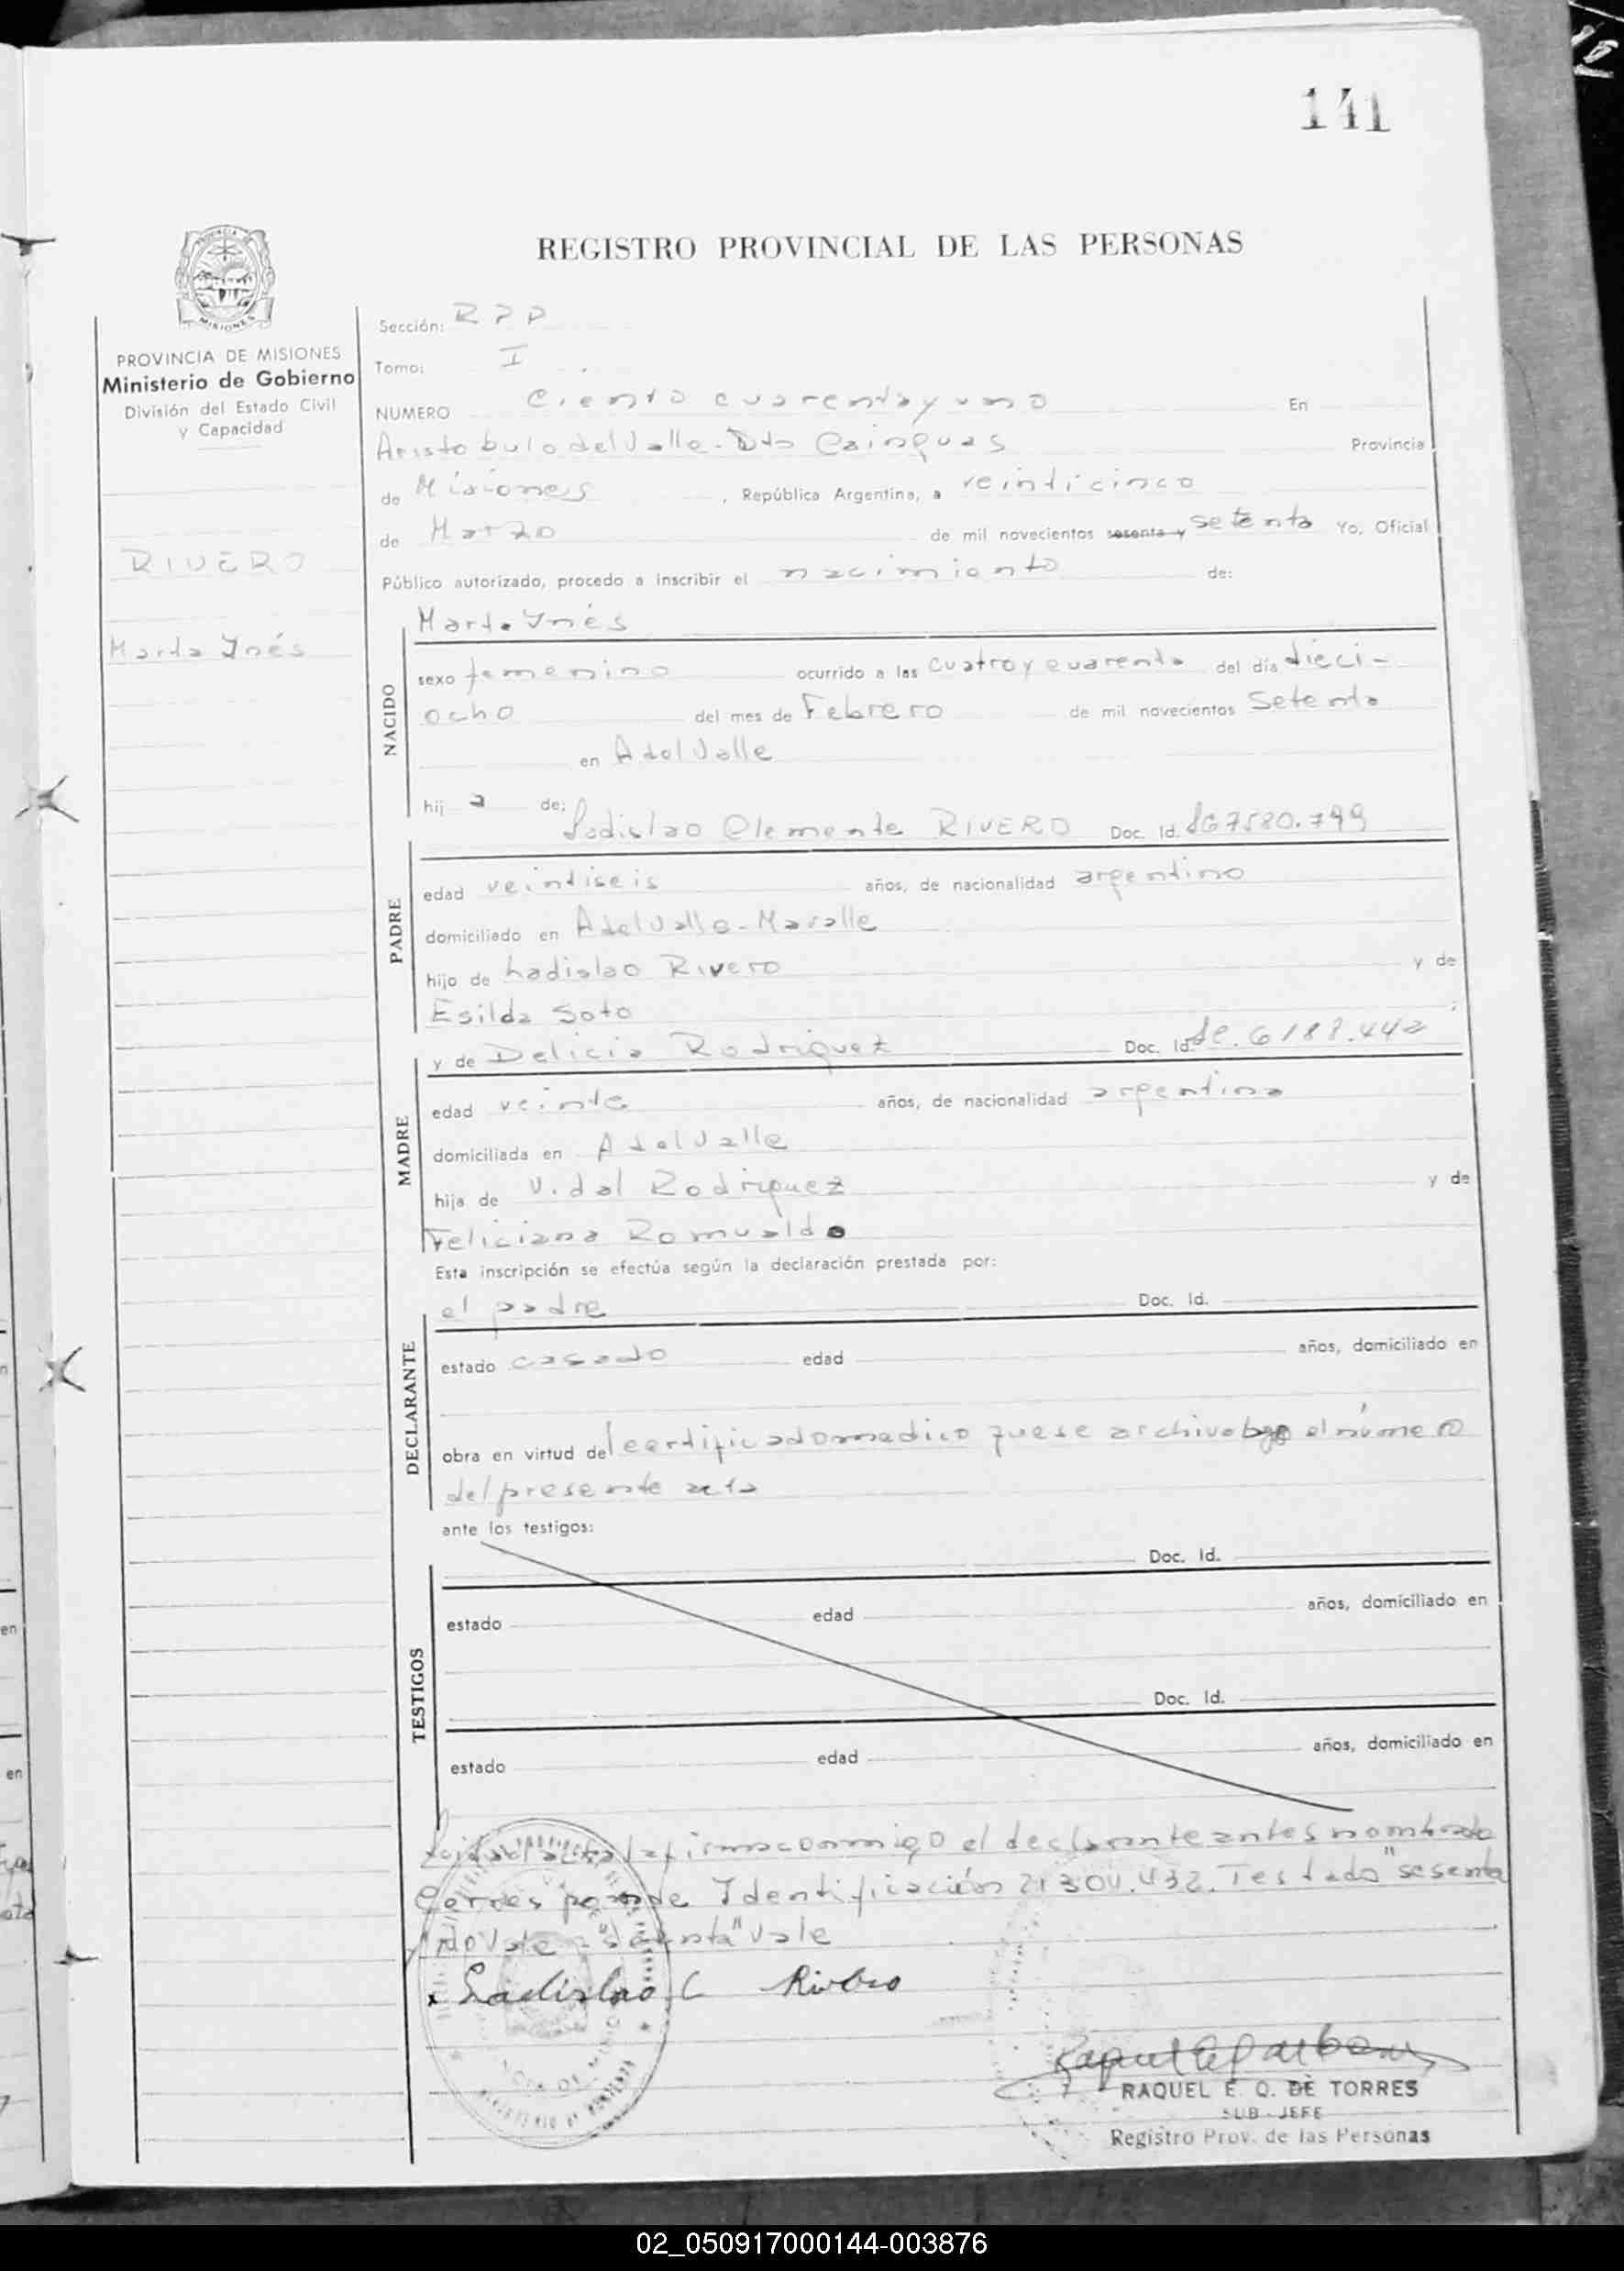 141
REGISTRO PROVINCIAL DE LAS PERSONAS
PROVINCIA
MISIONES
PROVINCIA DE MISIONES
Ministerio de Gobierno
División del Estado Civil
y Capacidad
RIVERO
Marta Ynés
Sección: R P P
Tomo: I
NUMERO Ciento cuarenta y uno En
Aristobulo del Valle - Dto Cainguas Provincia
de Misiones, República Argentina, a veinticinco
de Marzo de mil novecientos sesenta y setenta Yo, Oficial
Público autorizado, procedo a inscribir el nacimiento de:
NACIDO
Marta Ynés
sexo femenino ocurrido a las cuatro y cuarenta del día dieci-
ocho del mes de Febrero de mil novecientos Setenta
en A del Valle
hij a de:
Ladislao Clemente RIVERO Doc. Id. 7580.799
PADRE
edad veintiseis años, de nacionalidad argentino
domiciliado en A del Valle -
hijo de Ladislao Rivero y de
Esilda Soto
MADRE
y de Delicia Rodriguez Doc. Id. 6188.442
edad veinte años, de nacionalidad argentina
domiciliada en A del Valle
hija de Vidal Rodriguez y de
Feliciana Romualdo
Esta inscripción se efectúa según la declaración prestada por:
DECLARANTE
el padre Doc. Id.
estado casado edad años, domiciliado en
obra en virtud del certificado medico que se archiva bajo el número
del presente acta
ante los testigos:
TESTIGOS
Doc. Id.
estado edad años, domiciliado en
Doc. Id.
estado edad años, domiciliado en
Leida el acta la firma conmigo el declarante antes nombrado
Corresponde Identificación 21.304.432. Testado "sesenta
y" no vale - "setenta" vale
x Ladislao C Rivero
RAQUEL E. Q. DE TORRES
SUB-JEFE
Registro Prov. de las Personas
02_050917000144-003876